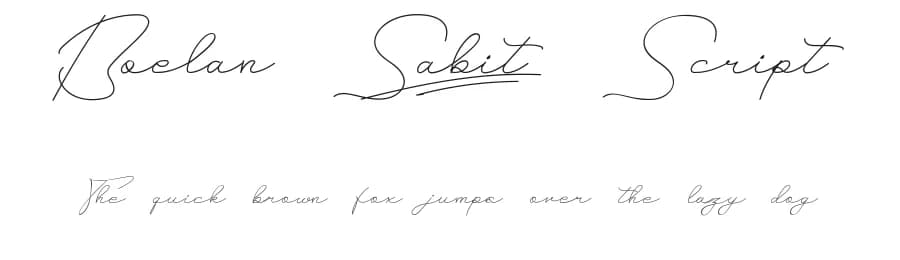 Boelan Sabit Script
The quick brown fox jumps over the lazy dog